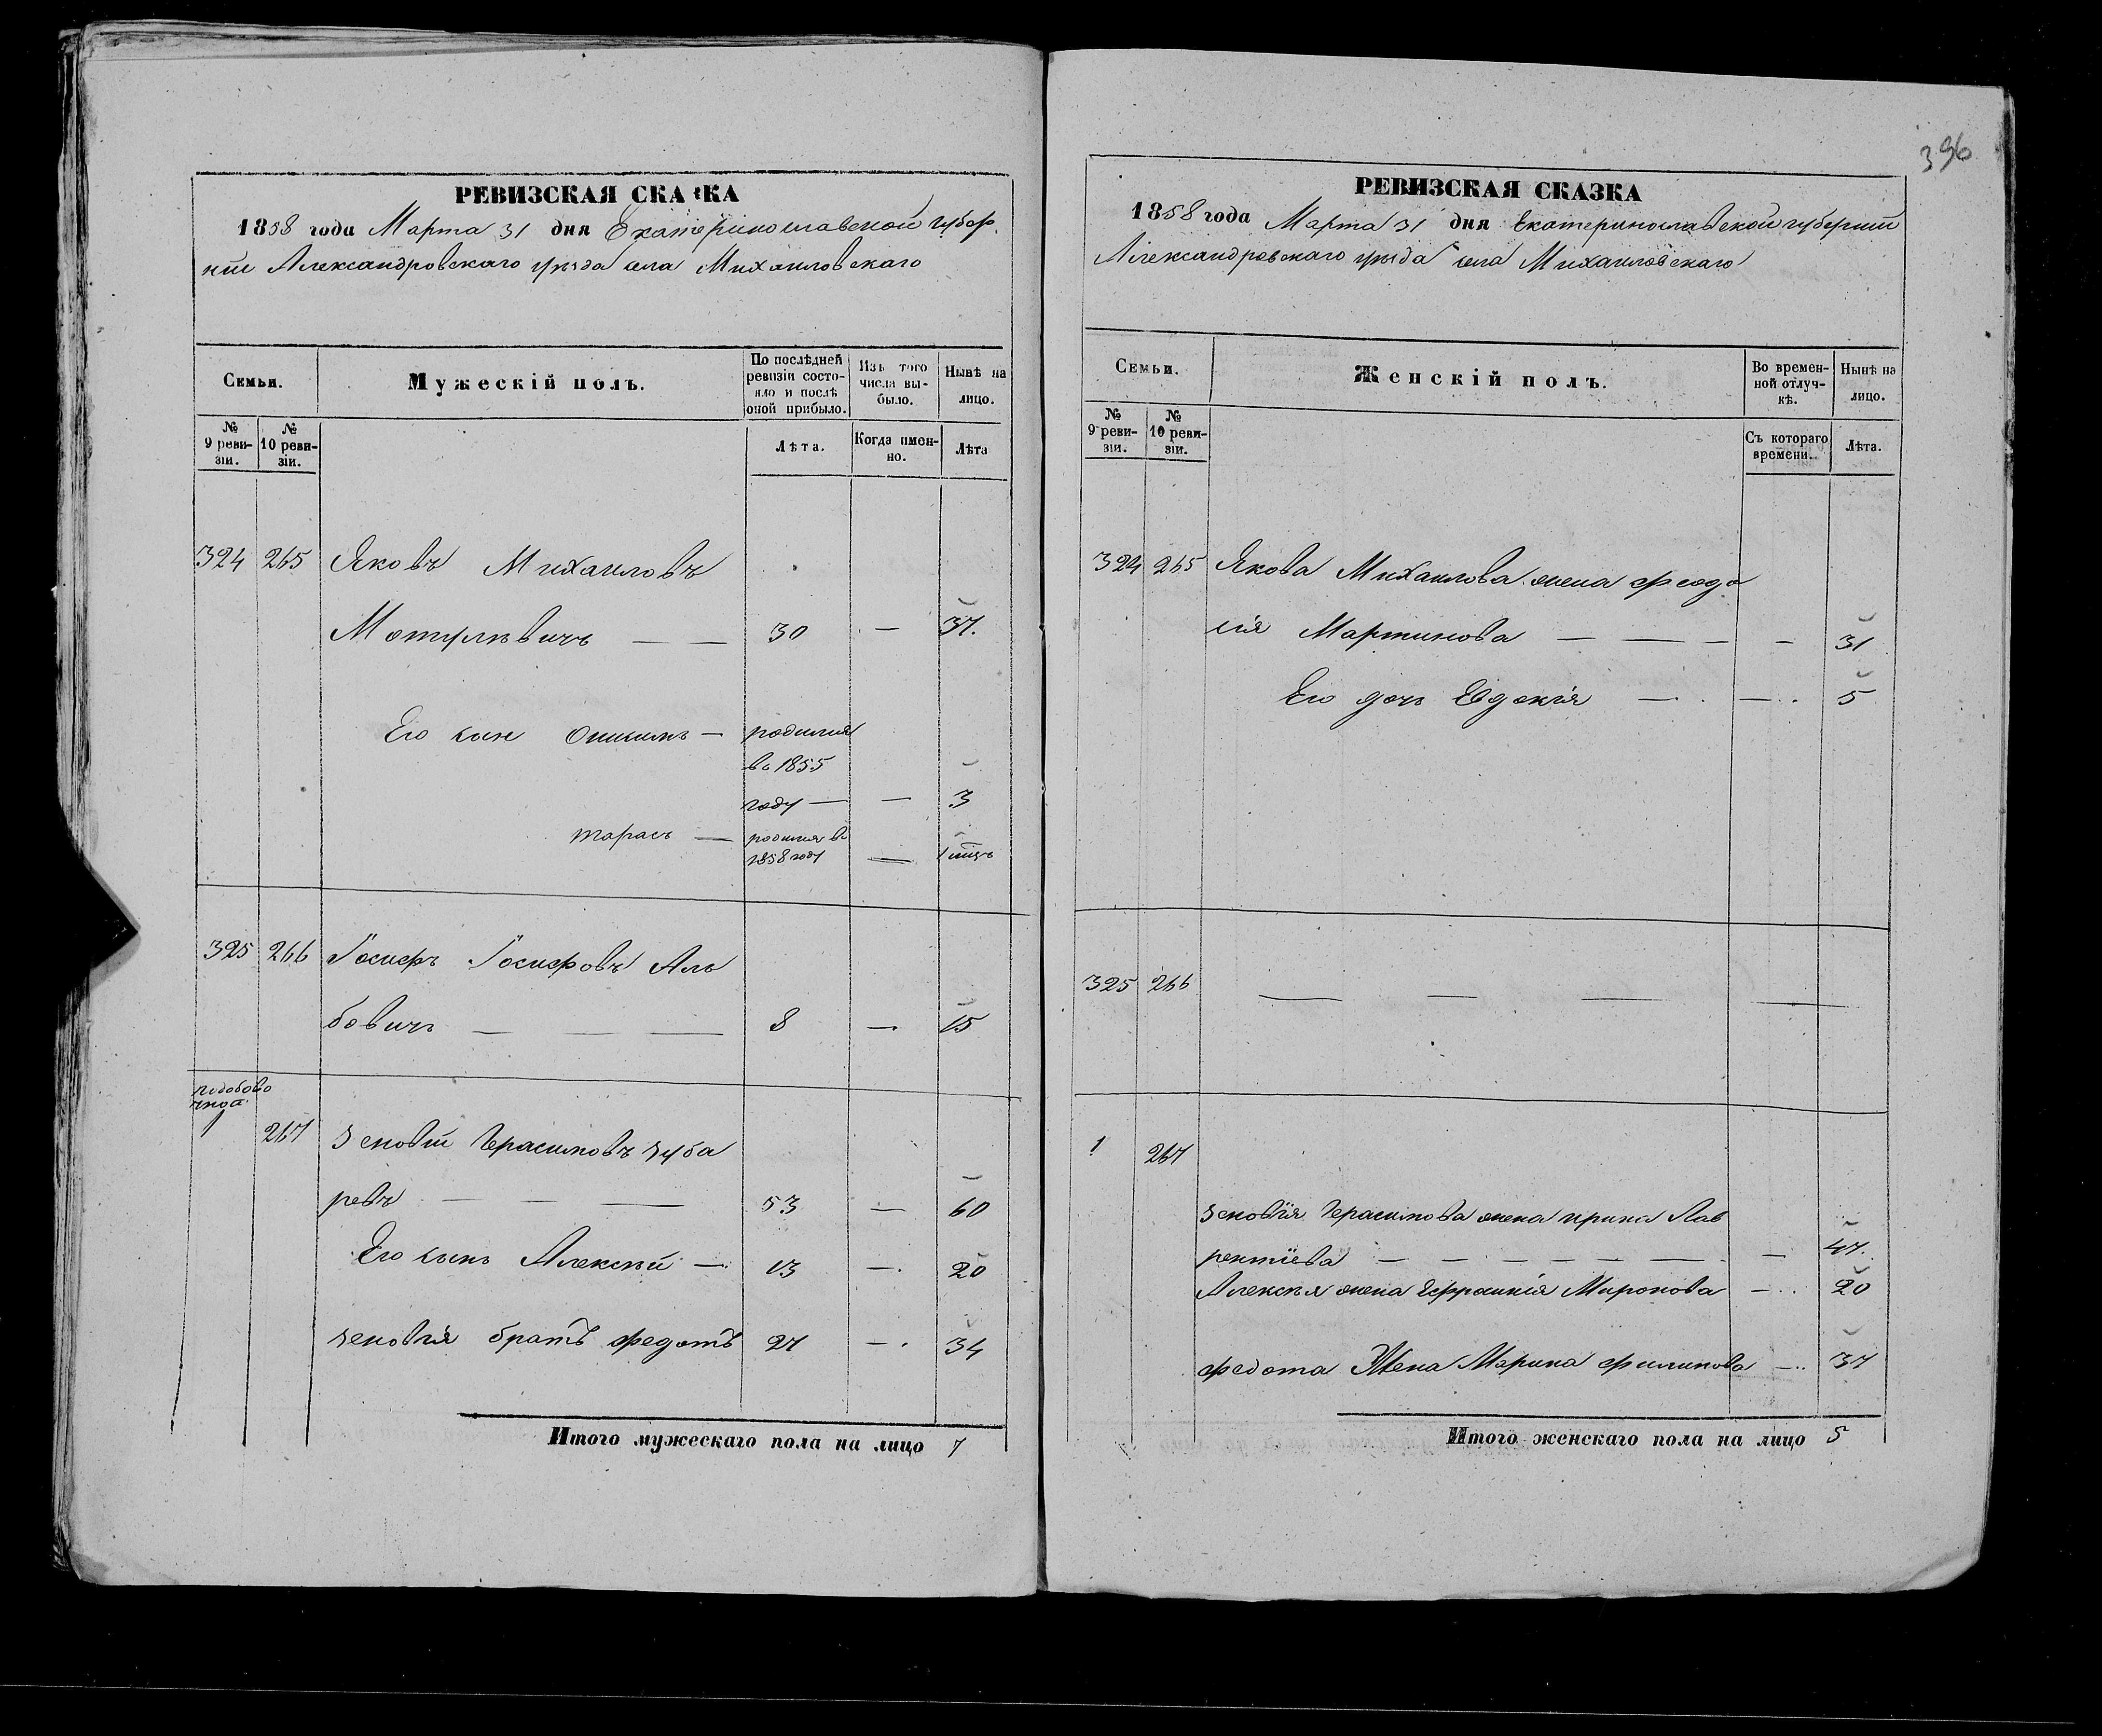 396
РЕВИЗСКАЯ СКАЗКА
1858 года Марта 31 дня Екатеринославской губер
ніи Александровскаго уѣзда села Михаиловскаго
Семьи.
Мужескій полъ.
По послѣдней ревизіи состояло и послѣ оной прибыло.
Изъ того числа выбыло.
Нынѣ на лицо.
№ 9 ревизіи.
№ 10 ревизіи.
Лѣта.
Когда именно.
Лѣта
324 265 Яковъ Михаиловъ
Мотулѣвичъ — — 30 — 37.
Его сын Онисимъ — родился
въ 1855
году — — 3
Тарасъ — родился въ
1858 году — 1 мцъ
325 266 Іосифъ Іосифовъ Аль
бовичъ — — — 8 — 15
1 267 Зеновій Герасимовъ Зуба
ревъ — — — 53 — 60
Его сынъ Алексѣй — 13 — 20
Зеновія братъ Федотъ 27 — 34
Итого мужескаго пола на лицо 7
РЕВИЗСКАЯ СКАЗКА
1858 года Марта 31 дня Екатеринославской губерніи
Александровскаго уѣзда села Михаиловскаго
Семьи.
Женскій полъ.
Во временной отлучкѣ.
Нынѣ на лицо.
№ 9 ревизіи.
№ 10 ревизіи.
Съ котораго времени.
Лѣта.
324 265 Якова Михаилова жена Феодо
сія Мартинова — — — — 31
Его дочь Евдокія — — 5
325 266 — — — —
1 267
Зеновія Герасимова жена Ирина Лав
рентіева — — — — — — — 47.
Алексѣя жена Ефросинія Миронова — 20
Федота Жена Марина Филипова — 37
Итого женскаго пола на лицо 5